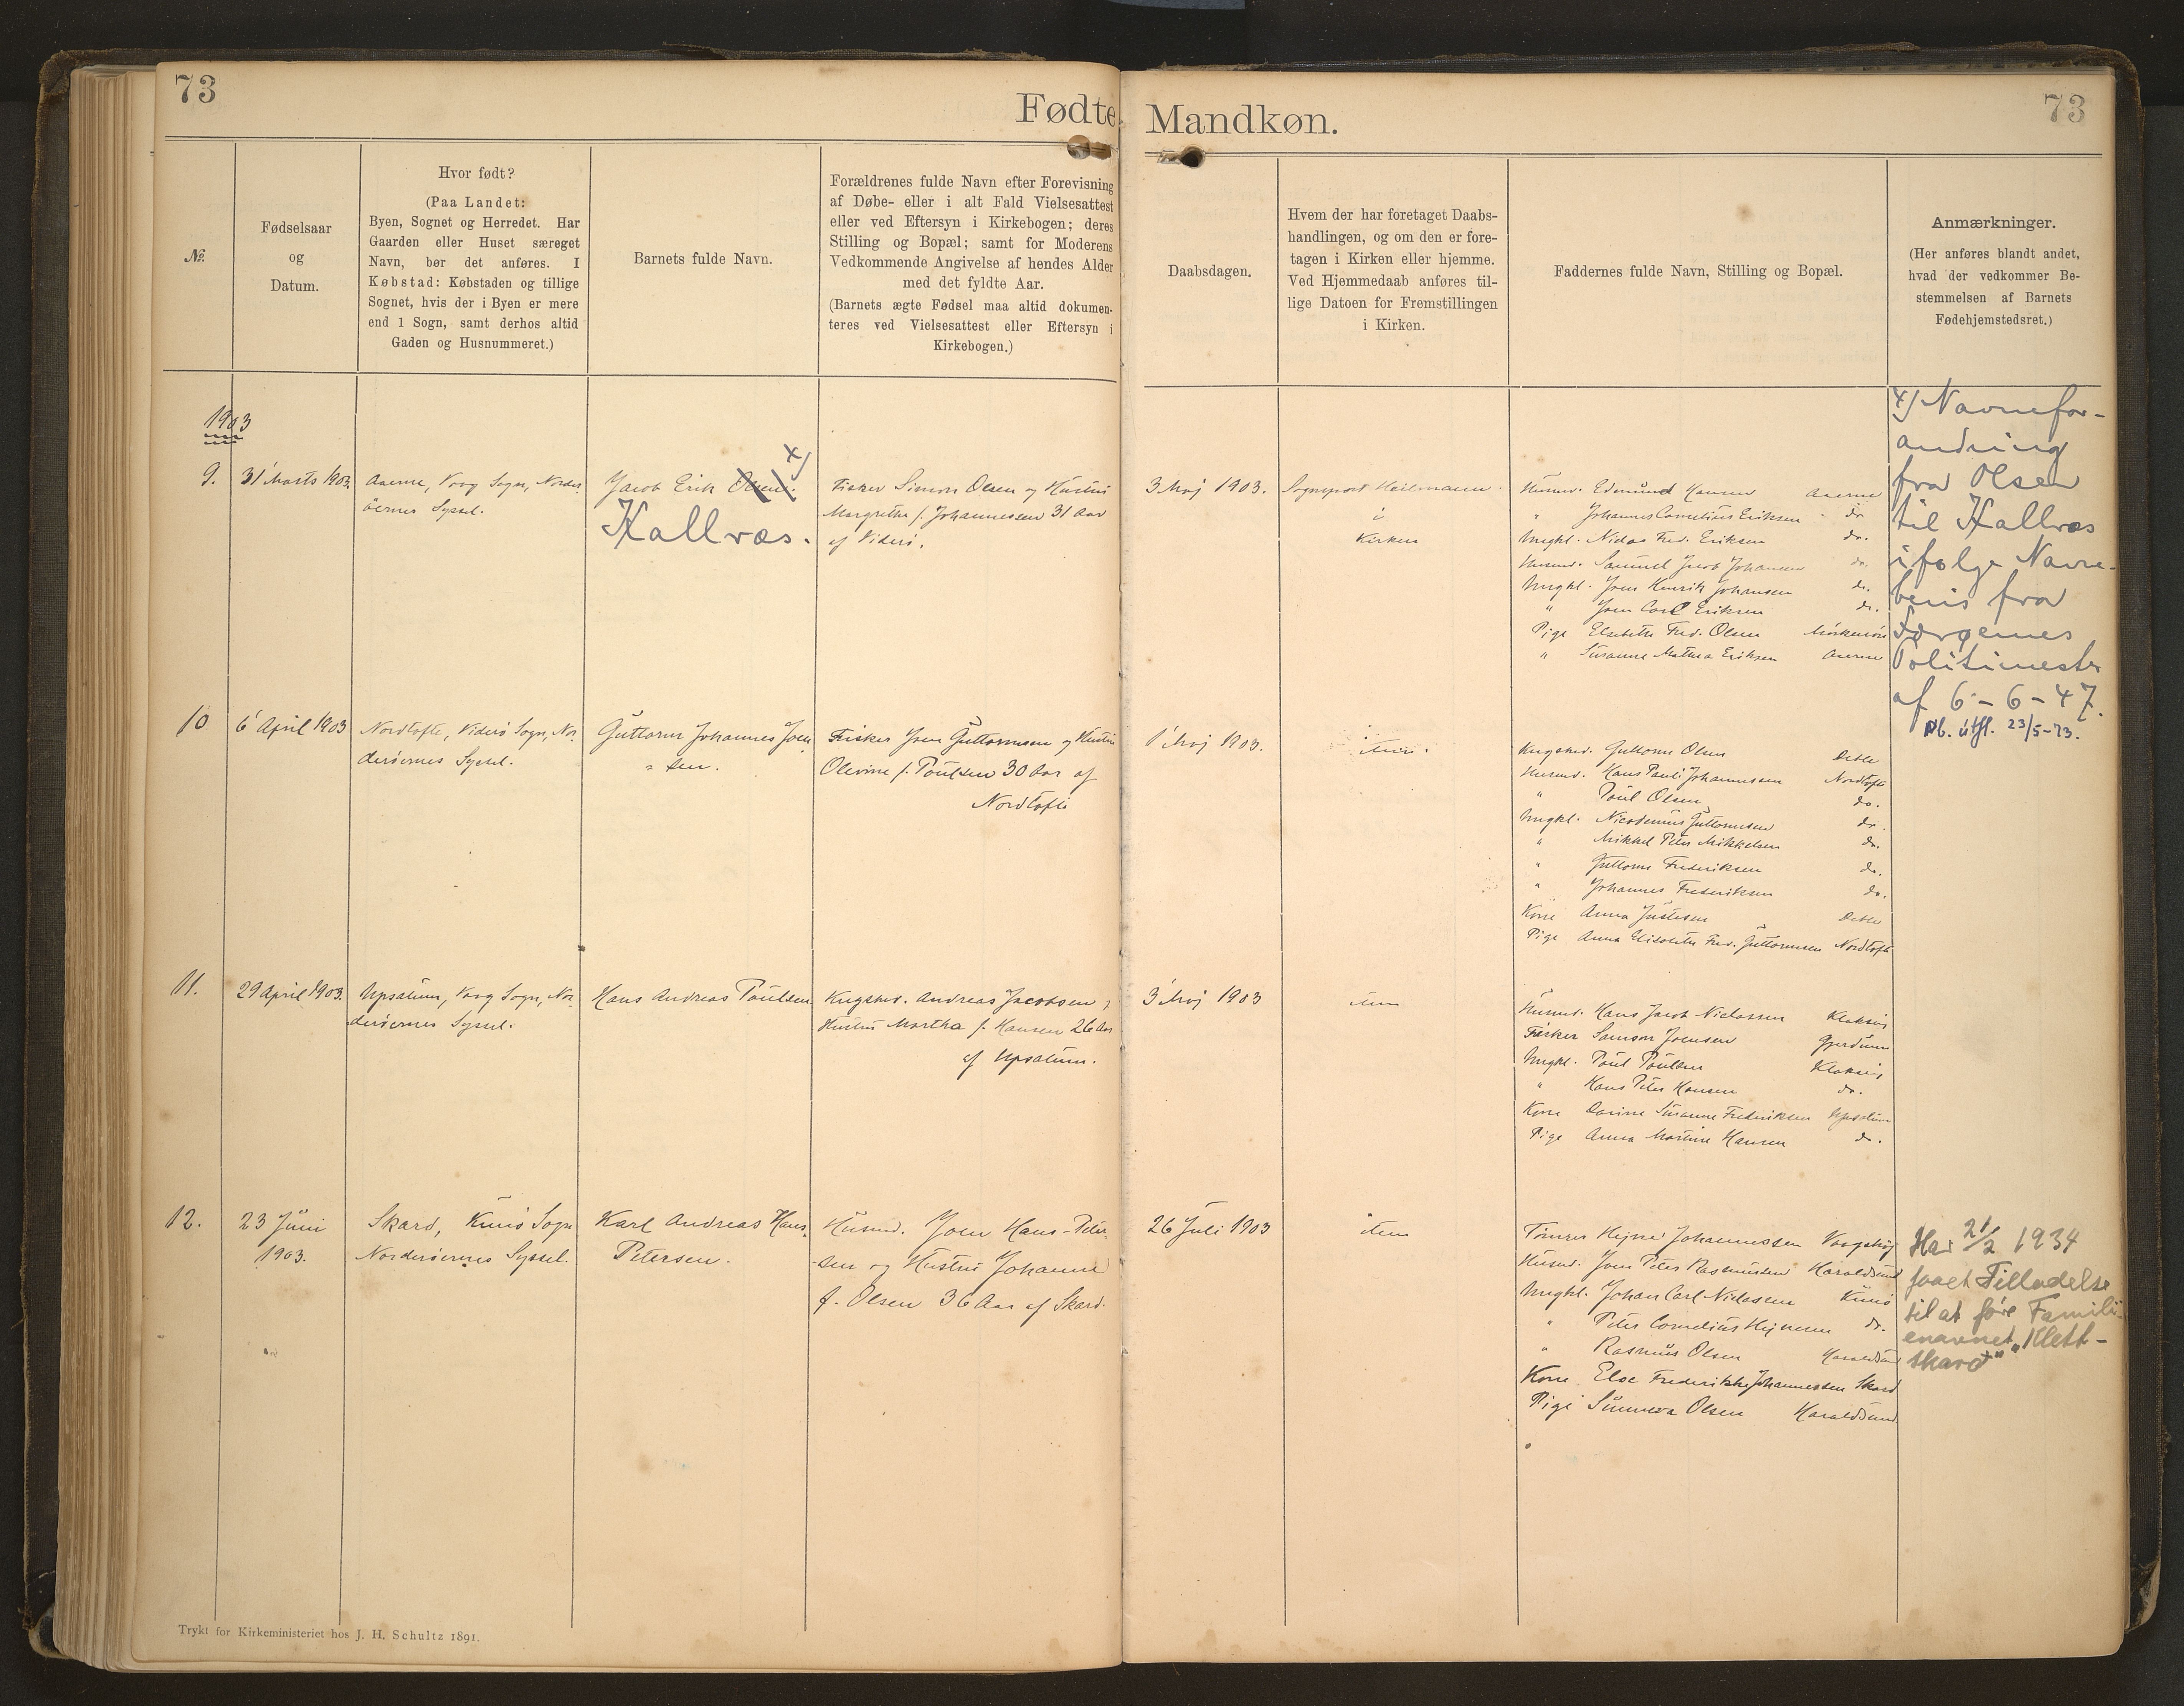 73
Fødte
Mandkøn.
73
№
Fødselsaar
og
Datum.
Hvor født?
(Paa Landet:
Byen, Sognet og Herredet. Har
Gaarden eller Huset særeget
Navn, bør det anføres. I
Købstad: Købstaden og tillige
Sognet, hvis der i Byen er mere
end 1 Sogn, samt derhos altid
Gaden og Husnummeret.)
Barnets fulde Navn.
Forældrenes fulde Navn efter Forevisning
af Døbe- eller i alt Fald Vielsesattest
eller ved Eftersyn i Kirkebogen; deres
Stilling og Bopæl; samt for Moderens
Vedkommende Angivelse af hendes Alder
med det fyldte Aar.
(Barnets ægte Fødsel maa altid dokumen-
teres ved Vielsesattest eller Eftersyn i
Kirkebogen.)
Daabsdagen.
Hvem der har foretaget Daabs-
handlingen, og om den er fore-
tagen i Kirken eller hjemme.
Ved Hjemmedaab anføres til-
lige Datoen for Fremstillingen
i Kirken.
Faddernes fulde Navn, Stilling og Bopæl.
Anmærkninger.
(Her anføres blandt andet,
hvad der vedkommer Be-
stemmelsen af Barnets
Fødehjemstedsret.)
1903
9.
31' Marts 1903.
Aaerne, Vaag Sogn, Norder
öernes Syssel.
Jacob Erik Olsen. x)
Kallvæs.
Fisker Simon Olsen og Hustru
Margretha f. Johannessen 31 Aar
af Viderö.
3 Maj 1903.
Sognepræst Heilmann
i
Kirken
Husmd. Edmund Hansen Aaerne
" Johannes Cornelius Eriksen - do
Ungkl. Niclas Fred. Eriksen do.
Husmd. Samuel Jacob Johansen do.
Ungkl. Joen Henrik Johansen do.
" Joen Carl Eriksen do.
Pige Elsebeth Fred. Olsen
" Susanne Mathea Eriksen Aaerne
x) Navnefor-
andring
fra Olsen
til Kallvæs
ifølge Navne-
bevis fra
Færøernes
Politimester
af 6-6-47.
Nb. útfl. 23/5-73.
10
6' April 1903
Nordtofte, Viderö Sogn, Nor
deröernes Syssel.
Guttorm Johannes Joen
= sen.
Fisker Joen Guttormsen og Hustru
Olevine f. Poulsen 30 Aar af
Nordtofte
1' Maj 1903.
item.
Kngsbd. Guttorm Olsen Deble
Husmd. Hans Pauli Johannesen Nordtofte
" Poul Olsen do.
Ungkl. Nicodemus Guttormsen do.
" Mikkel Peter Mikkelsen do.
" Guttorm Frederiksen do.
" Johannes Frederiksen do.
Kone Anna Justesen Deble
Pige Anna Elisabeth Fred. Guttormsen Nordtofte
11.
29 April 1903.
Upsalum, Vaag Sogn, Nor
deröernes Syssel.
Hans Andreas Poulsen
Kngsbd. Andreas Jacobsen
Hustru Martha f. Hansen 26 Aar
af Upsalum.
3' Maj 1903
item
Husmd. Hans Jacob Niclasen Klaksvig
Fisker Samson Joensen Gjerdum
Ungkl. Poul Poulsen Klaksvig
" Hans Peter Hansen do.
Kone Susanne Frederiksen Upsalum
Pige Anna Martine Hansen do.
12.
23 Juni
1903.
Skard, Kunö Sogn
Norderöernes Syssel.
Karl Andreas Hans-
Petersen.
Husmd. Joen Hans-Peter-
-sen og Hustru Johanne
f. Olsen 36 Aar af Skard.
26 Juli 1903
item
Tömrer Hejne Johannessen
Husmd. Joen Peter Rasmussen Haraldsund
Ungkl. Johan Carl Niclassen Kunö
" Peter Cornelius Hejnesen do.
" Rasmus Olsen Haraldsund
Kone Else Frederikke Johannessen Skard
Pige Sunneva Olsen Haraldsund
Har 21/2 1934
faaet Tilladelse
til at føre Famili-
enavnet „Klett-
skard"
Trykt for Kirkeministeriet hos J. H. Schultz 1891.